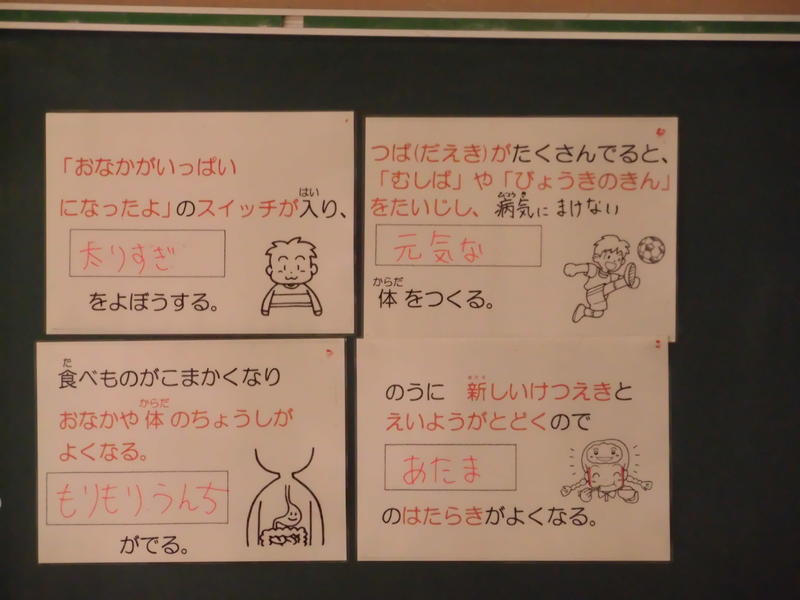 「おなかがいっぱい
になったよ」のスイッチが入り、
はい
太りすぎ
をよぼうする。
つば(だえき)がたくさんでると、
「むしば」や「びょうきのきん」
をたいじし、病気にまけない
元気な
からだ
体をつくる。
た
食べものがこまかくなり
からだ
おなかや体のちょうしが
よくなる。
もりもりうんち
がでる。
のうに 新しいけつえきと
えいようがとどくので
あたま
のはたらきがよくなる。